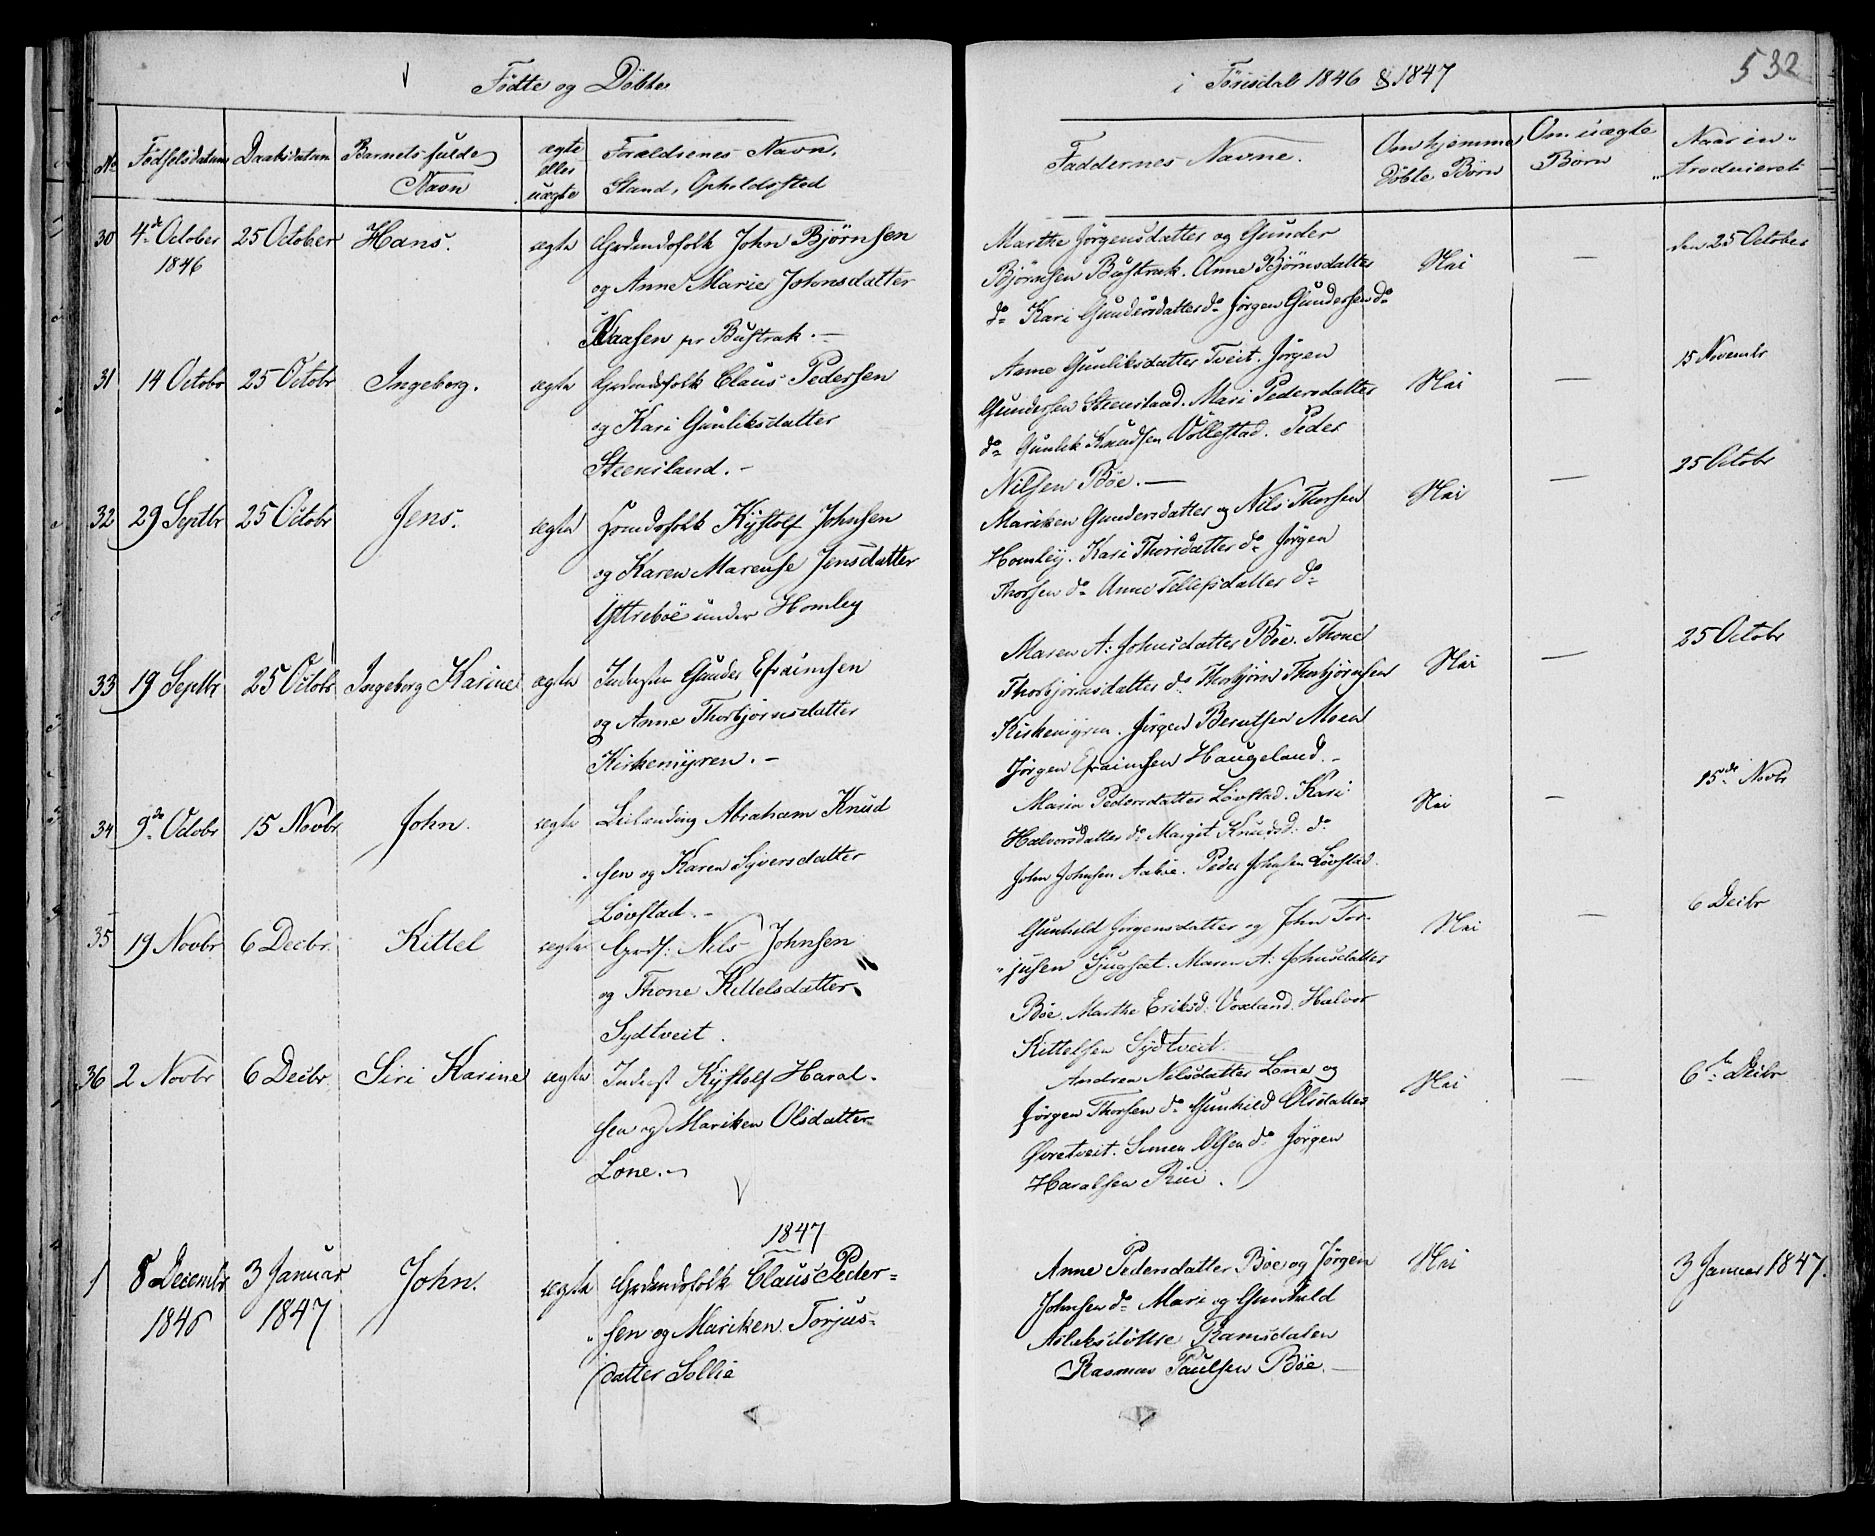 Fødte og Døbte
i Tørisdal 1846 & 1847
532
No
Fødselsdatum
Daabsdatum
Barnets fulde
Navn
ægte
eller
uægte
Forældrenes Navn,
Stand, Opholdssted
Faddernes Navne.
Om hjemme
døbte Børn
Om uægte
Børn
Naar in-
troduceret
30 4de October 25 October Hans. ægte Gaardmdsfolk John Bjørnsen
1846
og Anne Marie Johnsdatter
Kaasen pr Bustrak.
Marthe Jørgensdatter og Gunder
Bjørnsen Bustrak. Anne Bjørnsdatter
do Kari Gundersdatter do Jørgen Gundersen do
Nei — den 25 October
31 14 Octobr 25 Octobr Ingeborg. ægte Claus Pedersen
og Kari Gunliksdatter
Steensland.
Anne Gunliksdatter Tveit. Jørgen
Gundersen Steensland. Mari Pedersdatter
do Gunlik Knudsen Vollestad. Peder
Nilsen Bøe.
Nei — 15 Novembr
32 29 Septbr 25 Octobr Jens. ægte Kystolf Johnsen
og Karen Marense Jensdatter
Yttrebøe under Homley
Mariken Gundersdatter og Nils Thorsen
Homley. Kari Thorsdatter do Jørgen
Thorsen do Anne Tellefsdatter do
Nei — 25 Octobr
33 19 Septbr 25 Octobr Ingeborg Karine ægte Inderster Gunder Efraimsen
og Anne Thorbjørnsdatter
Kirkemyren.
Maren A: Johnsdatter Bøe. Thone
Thorbjørnsdatter do. Thorbjørn Thorbjørnsen
Kirkemyren. Jørgen Berntsen Moen
Jørgen Efraimsen Haugeland.
Nei — 25 Octobr
34 9de Octobr 15 Novbr John. ægte Leilending Abraham Knud
sen og Karen Syversdatter
Løvstad.
Maria Pedersdatter Løvstad. Kari
Halvorsdatter do Margit Knudsd: do
John Johnsen Aabøe. Peder Johnsen Løvstad.
Nei — 15de Novbr
35 19 Novbr 6 Decbr. Kittel ægte Grdf: Nils Johnsen
og Thone Kittelsdatter
Sydtveit.
Gunhild Jørgensdatter og John Tor-
jusen Maren A: Johnsdatter
Bøe. Marthe Eriksd: Voxland. Halvor
Kittelsen Sydtveit.
Nei — 6 Decbr
36 2 Novbr 6 Decbr Siri Karine ægte Inderst Kystolf Haral-
sen og Mariken Olsdatter
Lone.
Andrea Nilsdatter Lone og
Jørgen Thorsen do Gunhild Olsdatter
Øvretveit. Simen Olsen do Jørgen
Haralsen Rui.
Nei — 6te Decbr
1847
1 8 Decembr 3 Januar John. ægte Claus Peder-
1846 1847
sen og Mariken Torjus-
datter Sollie
Anne Pedersdatter Bøe og Jørgen
Johnsen do Mari og Gunhild
Aslaksdøttre Ramsdalen
Rasmus Paulsen Bøe.
Nei 3 Januar 1847.